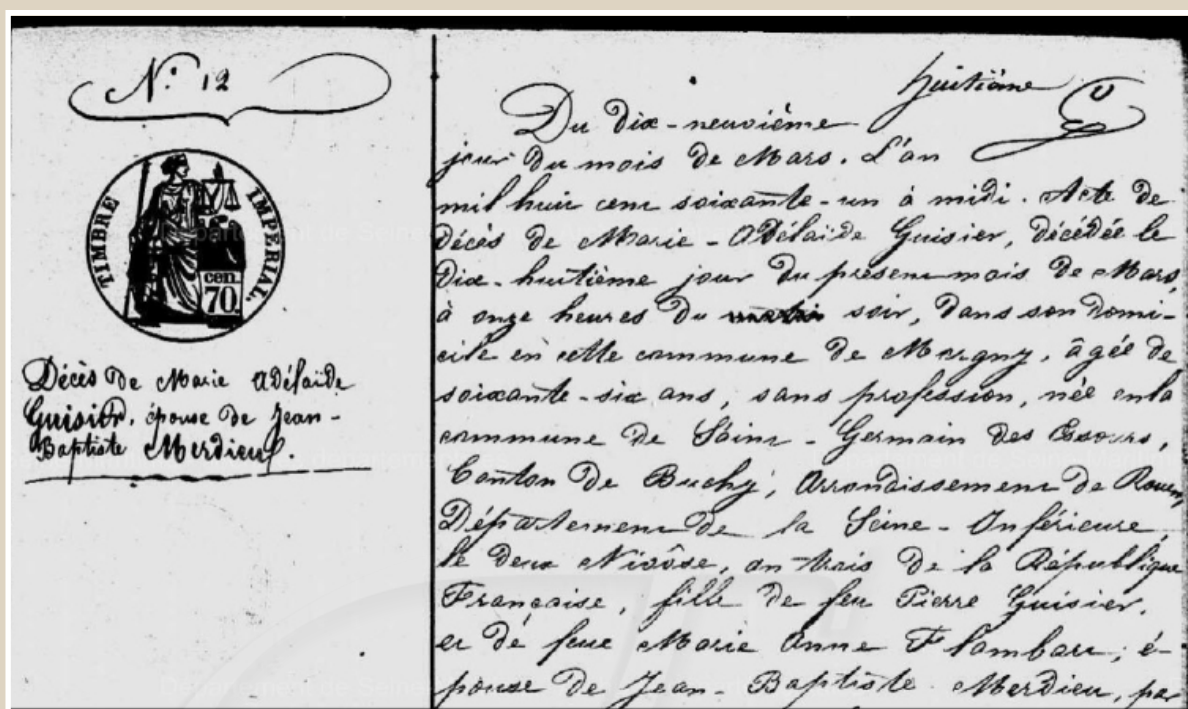 N.° 12
TIMBRE IMPERIAL.
cen.
70.
Décès de Marie Adélaïde
Guisier, épouse de Jean-
Baptiste Merdieu.
huitième
Du dix-neuvième
jour du mois de Mars. L'an
mil huit cent soixante-un à midi. Acte de
décès de Marie-Adélaïde Guisier, décédée le
dix-huitième jour du présent mois de Mars,
à onze heures du soir, dans son domi-
cile en cette commune de Morgny, âgée de
soixante-six ans, sans profession, née en la
commune de Saint-Germain des Essours,
Canton de Buchy, Arrondissement de Rouen,
Département de la Seine-Inférieure,
le deux Nivôse, an trois de la République
Française, fille de feu Pierre Guisier,
et de feue Marie Anne Flambart; é-
pouse de Jean-Baptiste Merdieu, par